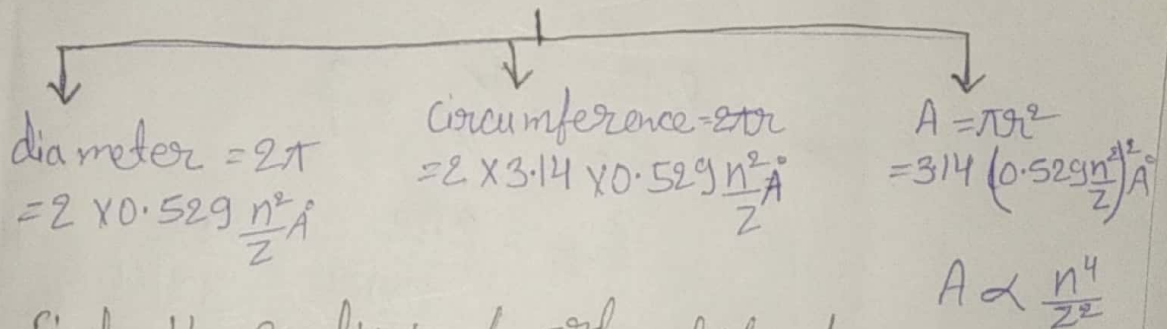 diameter = 2r
= 2 x 0.529 n²/Z Å
Circumference = 2πr
= 2 x 3.14 x 0.529 n²/Z Å
A = πr²
= 3.14 (0.529 n²/Z)² Å
A ∝ n⁴/Z²